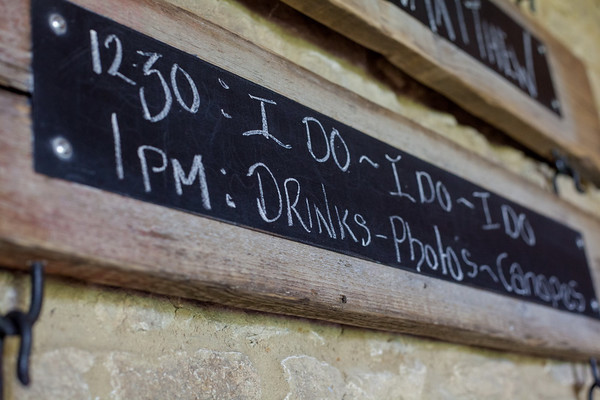 MATTHEW
12.30 : I DO ~ I DO ~ I DO
1PM : DRINKS - Photo's ~ Canopes